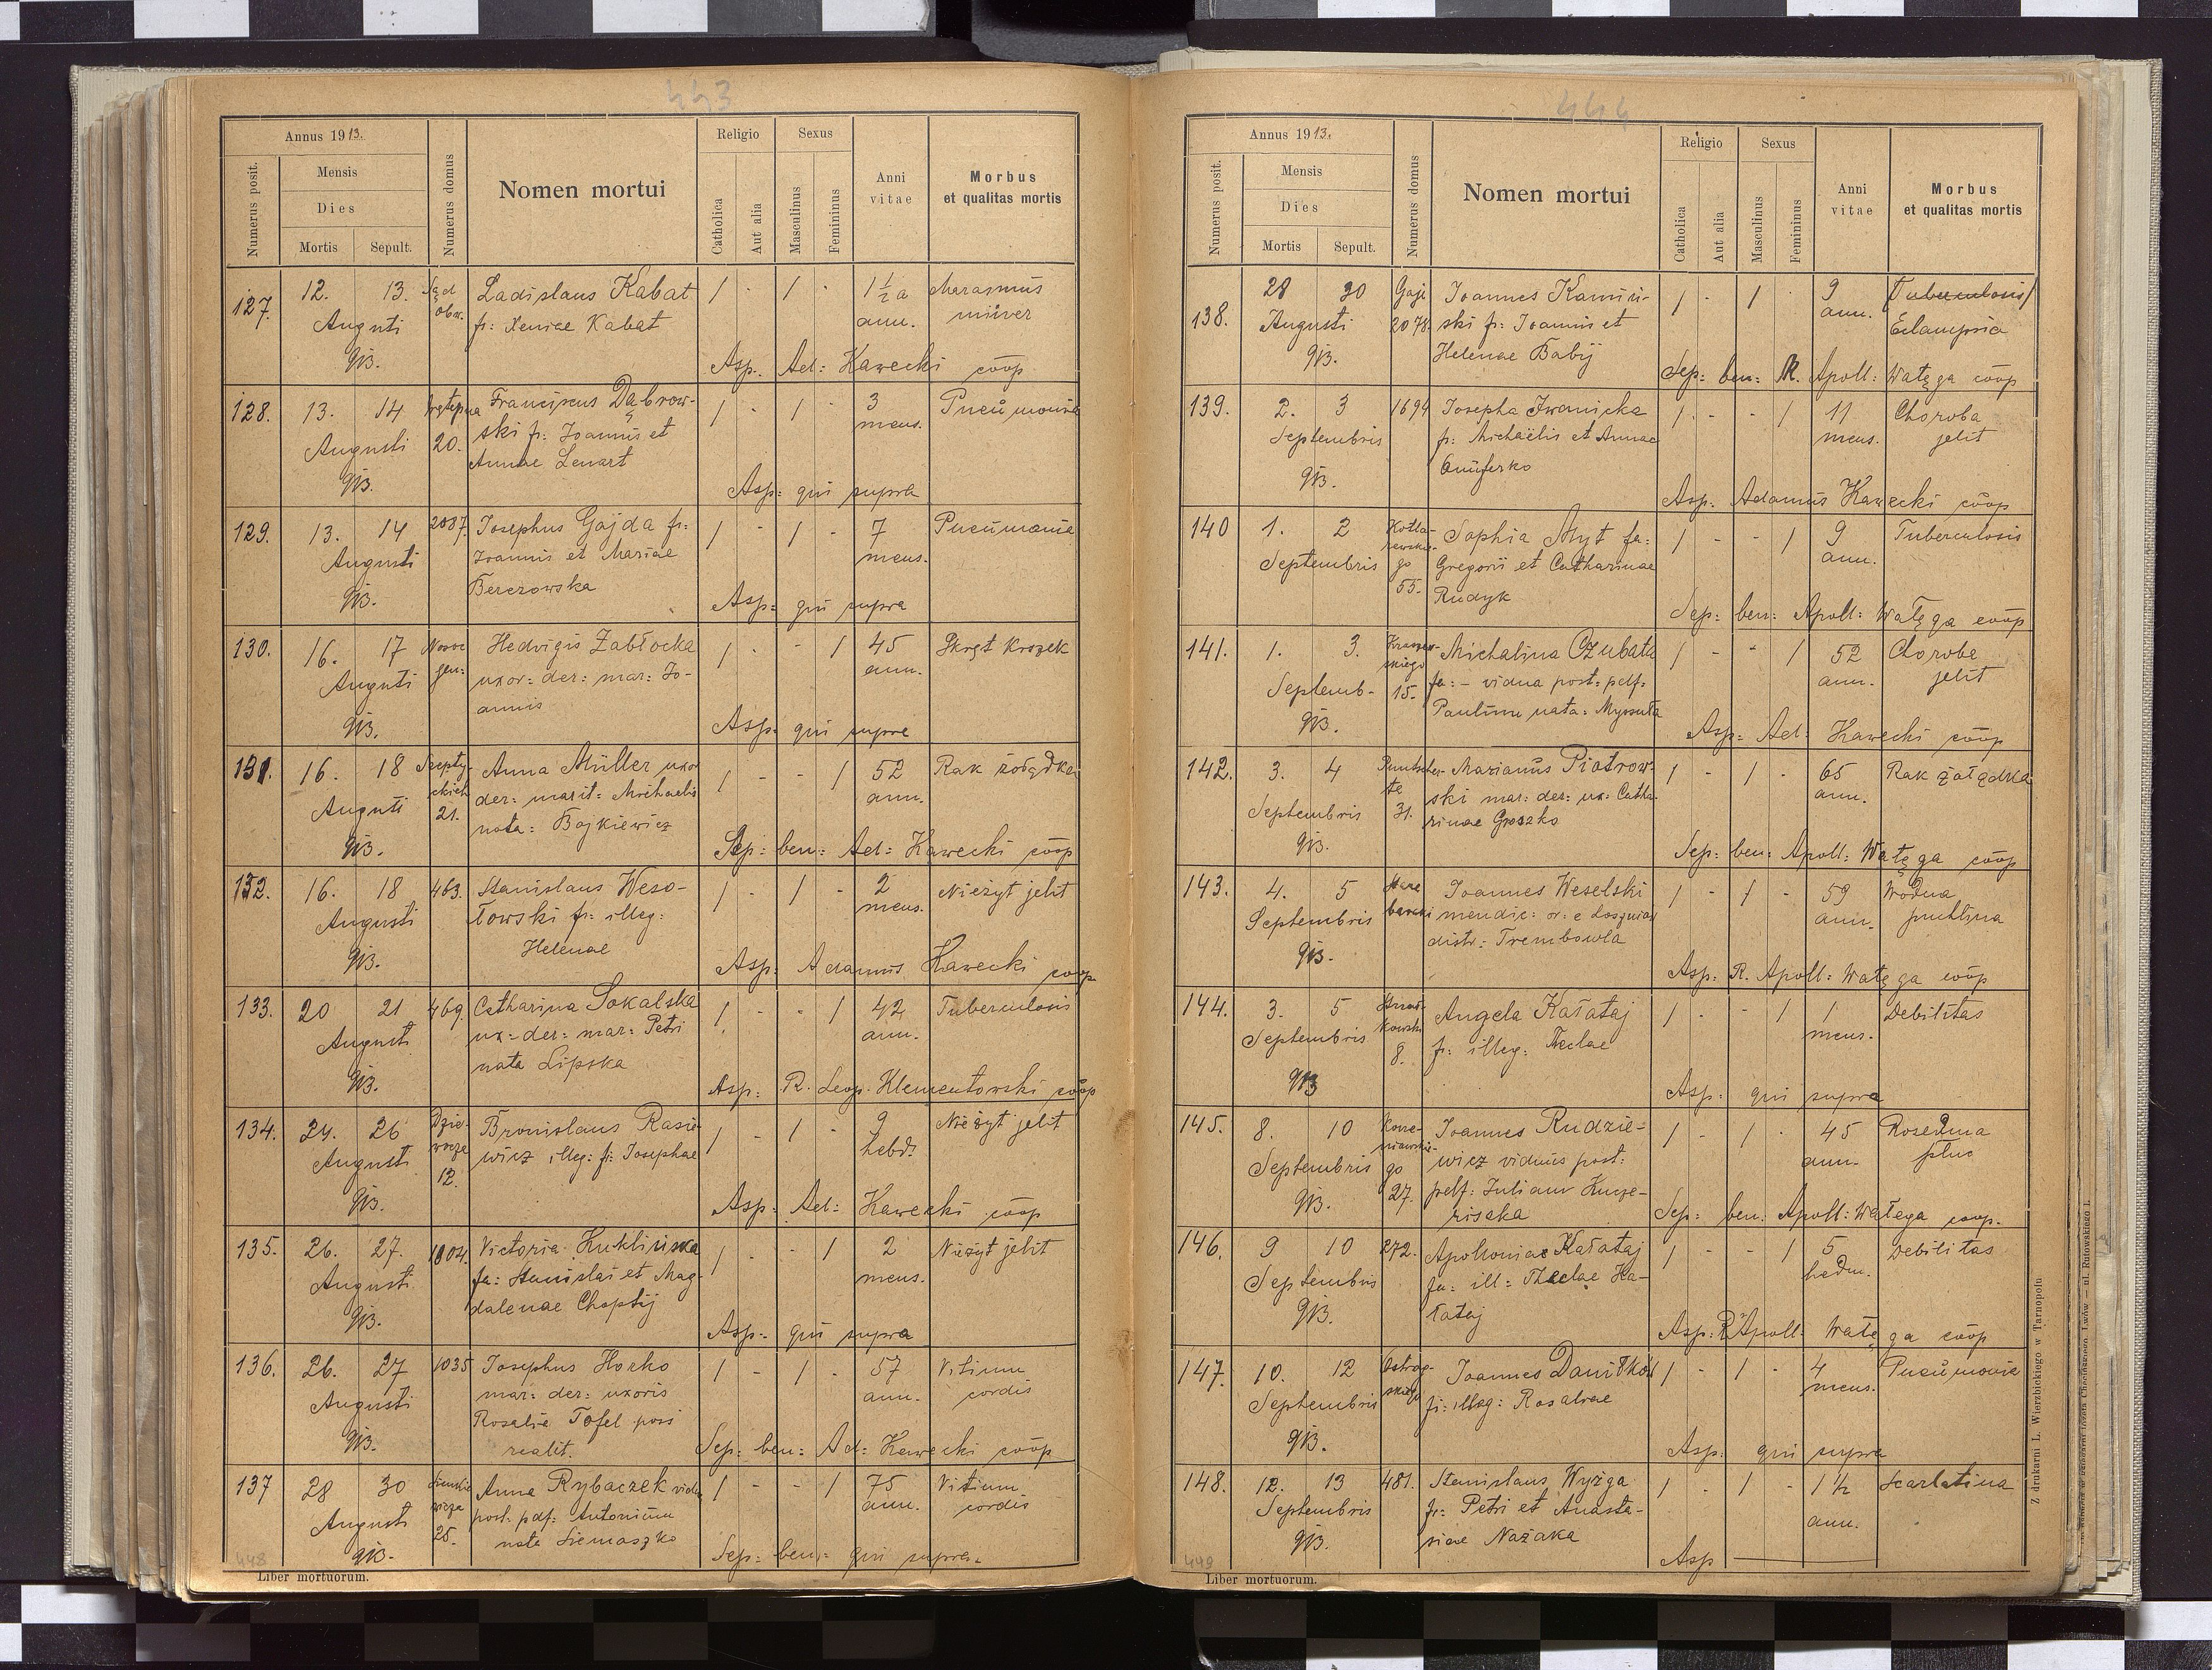 443
Annus 1913.
Numerus posit.
Mensis
Dies
Mortis
Sepult.
Numerus domus
Nomen mortui
Religio
Catholica
Aut alia
Sexus
Masculinus
Femininus
Anni
vitae
Morbus
et qualitas mortis
127. 12. 13. Ladislaus Kabat 1 - 1 - 1½ a Marasmus
Augusti fr: Xeniae Kabat ann.
913. Asp. Ad: Kawecki coop
128. 13. 14 Franciscus Dąbrow- 1 - 1 - 3 Pneumonia
Augusti 20. ski fr: Joannis et mens.
Annae Lenart
913. Asp: qui supra
129. 13. 14 2087. Josephus Gajda fr: 1 - 1 - 7 Pneumonia
Augusti Joannis et Mariae mens.
913. Berezowska
Asp: qui supra
130. 16. 17 Hedvigis Zabłocka 1 - - 1 45 Skręt kiszek
Augusti uxor: der: mar: Jo- ann.
annis
913. Asp: qui supra
131. 16. 18 Anna Müller uxor 1 - - 1 52 Rak żołądka
Augusti 21. der: marit: Michaelis ann.
nata: Bojkiewicz
913. Sep: ben: Ad: Kawecki coop
132. 16. 18 463. Stanislaus Weso- 1 - 1 - 2 Nieżyt jelit
Augusti łowski fr: illeg: mens.
Helenae
913. Asp: Adamus Kawecki coop
133. 20 21 469. Catharina Sokalska 1 - - 1 42 Tuberculosis
Augusti ux: der: mar: Petri ann.
nata Lipska
913. Asp: R. Leop. Klementowski coop
134. 24. 26 Bronislaus Rasie- 1 - 1 - 9 Nieżyt jelit
Augusti 12. wicz illeg: fr: Josephae hebd:
913. Asp: Ad: Kawecki coop
135. 26. 27. 1804. Victoria Kuklińska 1 - - 1 2 Nieżyt jelit
Augusti fa: Stanislai et Mag- mens.
dalenae Choptij
913. Asp: qui supra
136. 26. 27 1035 Josephus Horko 1 - 1 - 57 Vitium
Augusti mar: der: uxoris ann. cordis
Rosalie Tofel poss
913. realit. Sep: ben: Ad: Kawecki coop
137 28 30 Anna Rybaczek vidua 1 - - 1 75 Vitium
Augusti post. pdf: Antonium ann. cordis
25. nata Siemaszko
913. Sep: ben: qui supra.
448
Liber mortuorum.
444
Annus 1913.
Numerus posit.
Mensis
Dies
Mortis
Sepult.
Numerus domus
Nomen mortui
Religio
Catholica
Aut alia
Sexus
Masculinus
Femininus
Anni
vitae
Morbus
et qualitas mortis
138. 28 30 Gaje Joannes Kamiń- 1 - 1 9 Tuberculosis
Augusti 2078. ski fr: Joannis et ann. Eclampsia
913. Helenae Babij
Sep: ben: R. Apoll: Watęga coop
139. 2. 3 1694 Josepha Iwanicka 1 - - 1 11 Choroba
Septembris fr: Michaëlis et Annae mens. jelit
Onuferko
913. Asp: Adamus Kawecki coop
140 1. 2 Sophia Myt fa: 1 - - 1 9 Tuberculosis
Septembris Gregorii et Catharinae ann.
55. Rudyk
Sep: ben: Apoll: Watęga coop
141. 1. 3. Michalina Czubata 1 - - 1 52 Choroba
Septemb- 15. fa: - vidua post: pdf: ann. jelit
Paulinu nata: Myssuła
913. Asp: Ad: Kawecki coop
142. 3. 4 Marianus Piotrow- 1 - 1 - 65 Rak żołądka
Septembris 31. ski mar: der: ux: Catha- ann.
rinae Groszko
913. Sep: ben: Apoll: Watęga coop
143. 4. 5 Stare Joannes Weselski 1 - 1 - 59 Wodna
Septembris baraki mendic: or: e Łosznia ann. puchlina
distr: Trembowla
913. Asp: R. Apoll: Watęga coop
144. 3. 5 Angela Kałataj 1 - - 1 1 Debilitas
Septembris 8. fr: illeg: Theclae mens.
913 Asp: qui supra
145. 8. 10 Joannes Rudzie- 1 - 1 - 45 Rosedma
Septembris wicz viduus post: ann. płuc
913. 27. pdf:
Sep: ben. Apoll: Watęga coop.
146. 9 10 272. Apoloniae Kałataj 1 - - 1 5 Debilitas
Septembris fa: ill: Theclae Ka- hedm.
913. łataj
Asp: R Apoll: Watęga coop
147. 10. 12 Joannes Daniłków 1 - 1 - 4 Pneumonia
Septembris fr: illeg: Rosaliae mens.
913. Asp: qui supra
148. 12. 13 481. Stanislaus Wyżga 1 - 1 - 1½ Scarlatina
Septembris fr: Petri et Anasta- ann.
913. siae Nażaka
Asp
449
Liber mortuorum.
Z drukarni L. Wierzbickiego w Tarnopolu